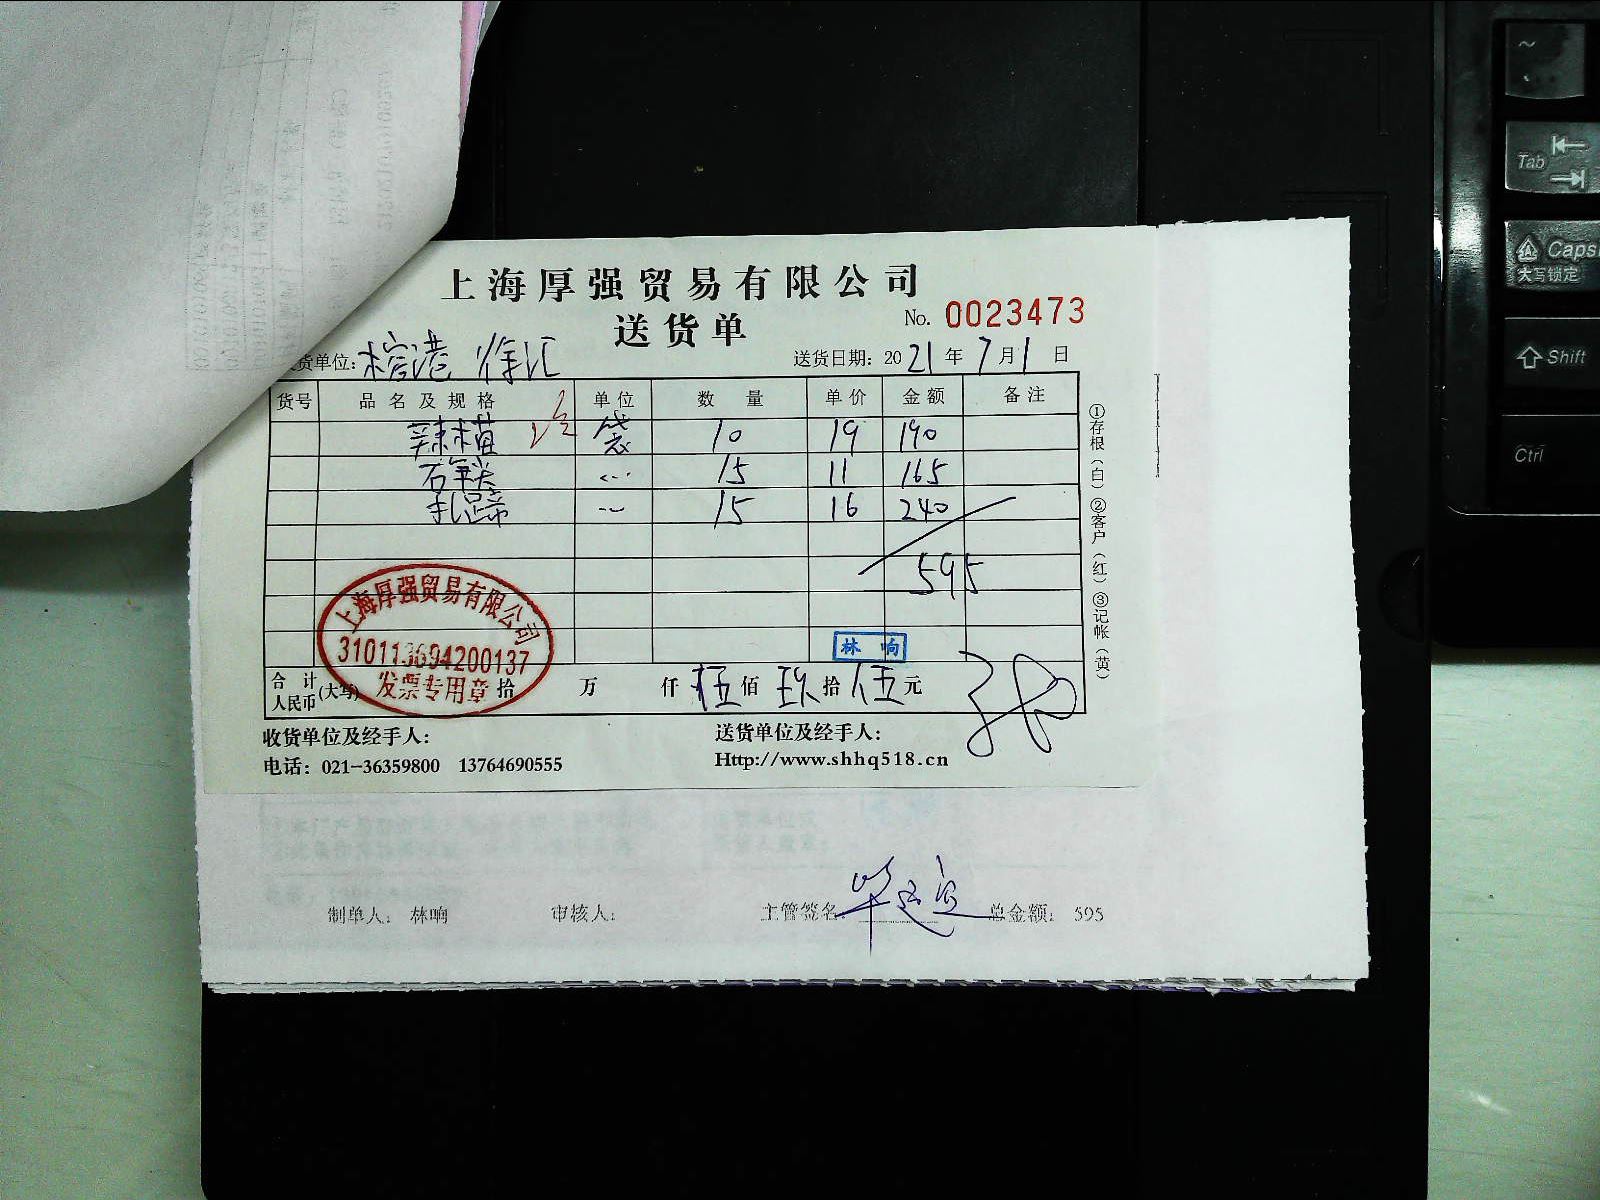 上海厚强贸易有限公司
送货单
No. 0023473
货单位: 榕港 徐汇
送货日期: 2021年7月1日
货号 品名及规格 单位 数量 单价 金额 备注
辣妹 袋 10 19 190
15 11 165
15 16 240
595
①存根(白) ②客户(红) ③记帐(黄)
上海厚强贸易有限公司
发票专用章
林响
合计人民币(大写) 拾 万 仟 伍 佰 玖 拾 伍 元
收货单位及经手人:
送货单位及经手人:
电话: 021-36359800 13764690555
Http://www.shhq518.cn
制单人: 林响 审核人: 主管签名: 总金额: 595
~
Tab
Caps
大写锁定
Shift
Ctrl